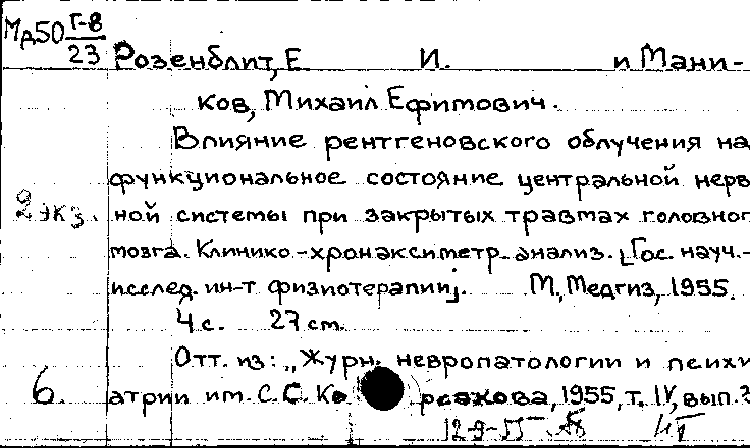 Мд50 Г-8/23
Розенблит, Е И. и Мани-
ков, Михаил Ефимович.
Влияние рентгеновского облучения на
функциональное состояние центральной нерв
2 экз. ной системы при закрытых травмах головног
мозга. Клинико-хронаксиметр. анализ. [Гос. науч.-
исслед. ин-т физиотерапии]. М., Медгиз, 1955.
4 с. 27 см.
Отт. из: „Журн. невропатологии и психи
6. атрии им. С. С. Ко рсакова, 1955, т. IV, вып. 3
12-9-55